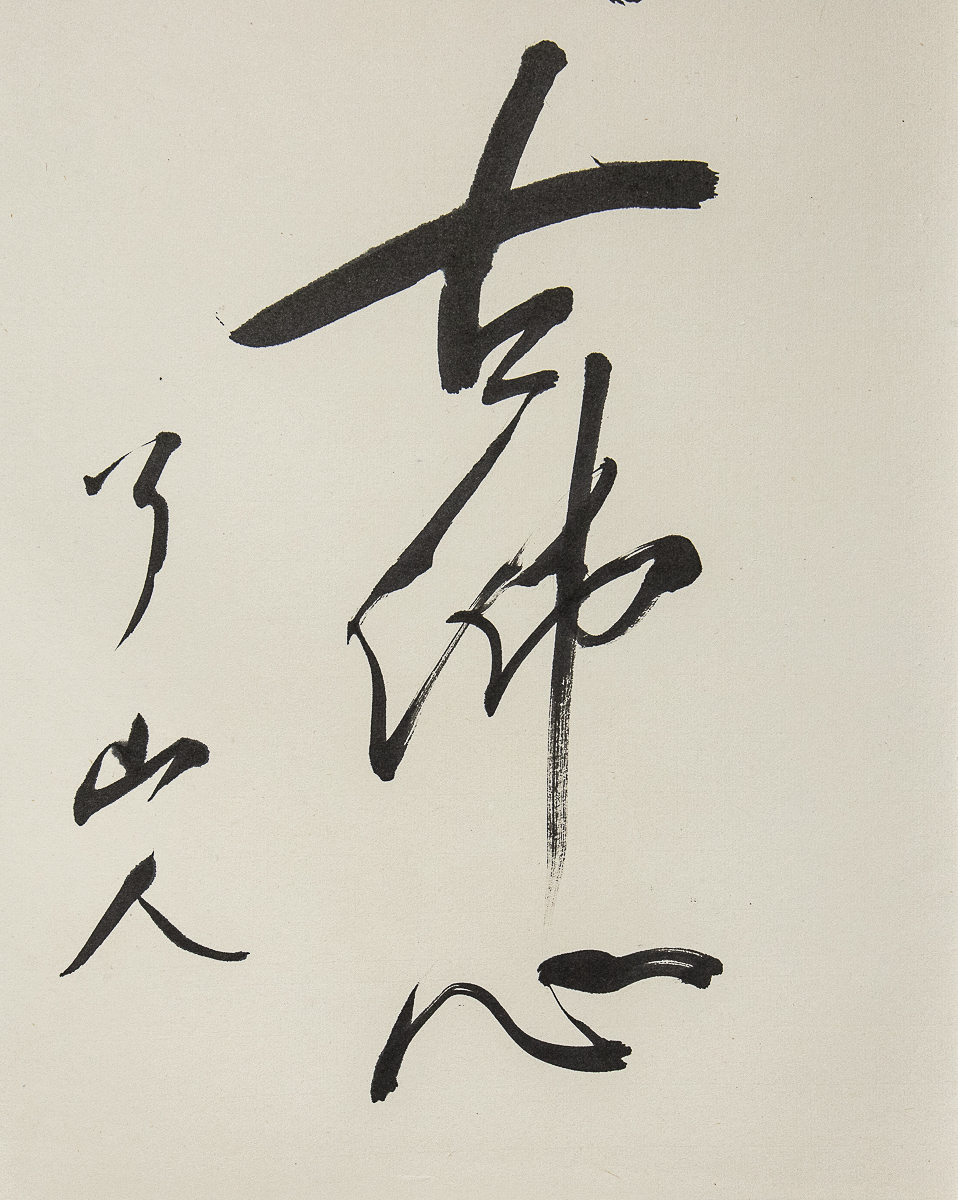 古佛心
了山人